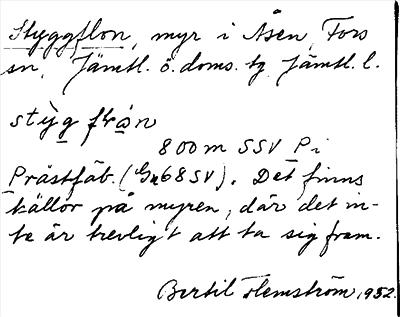 Styggflon, myr i Åsen, Fors
sn, Jämtl. ö. doms. tg Jämtl. l.
stỳg flɷn
800 m SSV P i
Prästfäb. (Gn68SV). Det finns
källor på myren, där det in-
te är trevligt att ta sig fram.
Bertil Flemström, 1952.